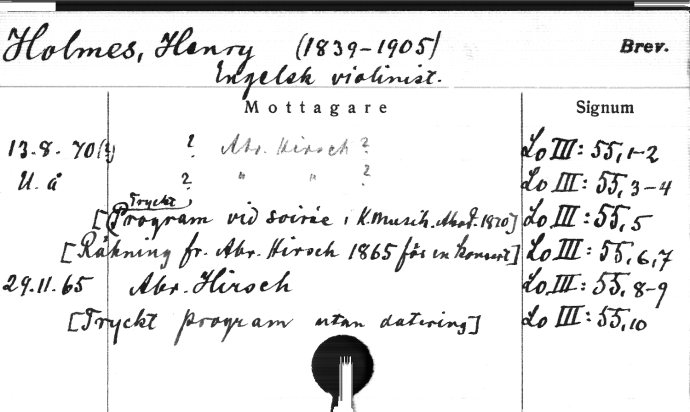 Holmes, Henry (1839-1905)
Brev.
Engelsk violinist.
Mottagare Signum
13.8.70(?) ? Abr. Hirsch ? Lo III: 55, 1-2
U. å ? " " ? Lo III: 55, 3-4
Tryckt
[Program vid soirée i K. Musik. Akad. 1870] Lo III: 55, 5
[Räkning fr. Abr. Hirsch 1865 för en konsert] Lo III: 55, 6, 7
29.11.65 Abr. Hirsch Lo III: 55, 8-9
[Tryckt program utan datering] Lo III: 55, 10